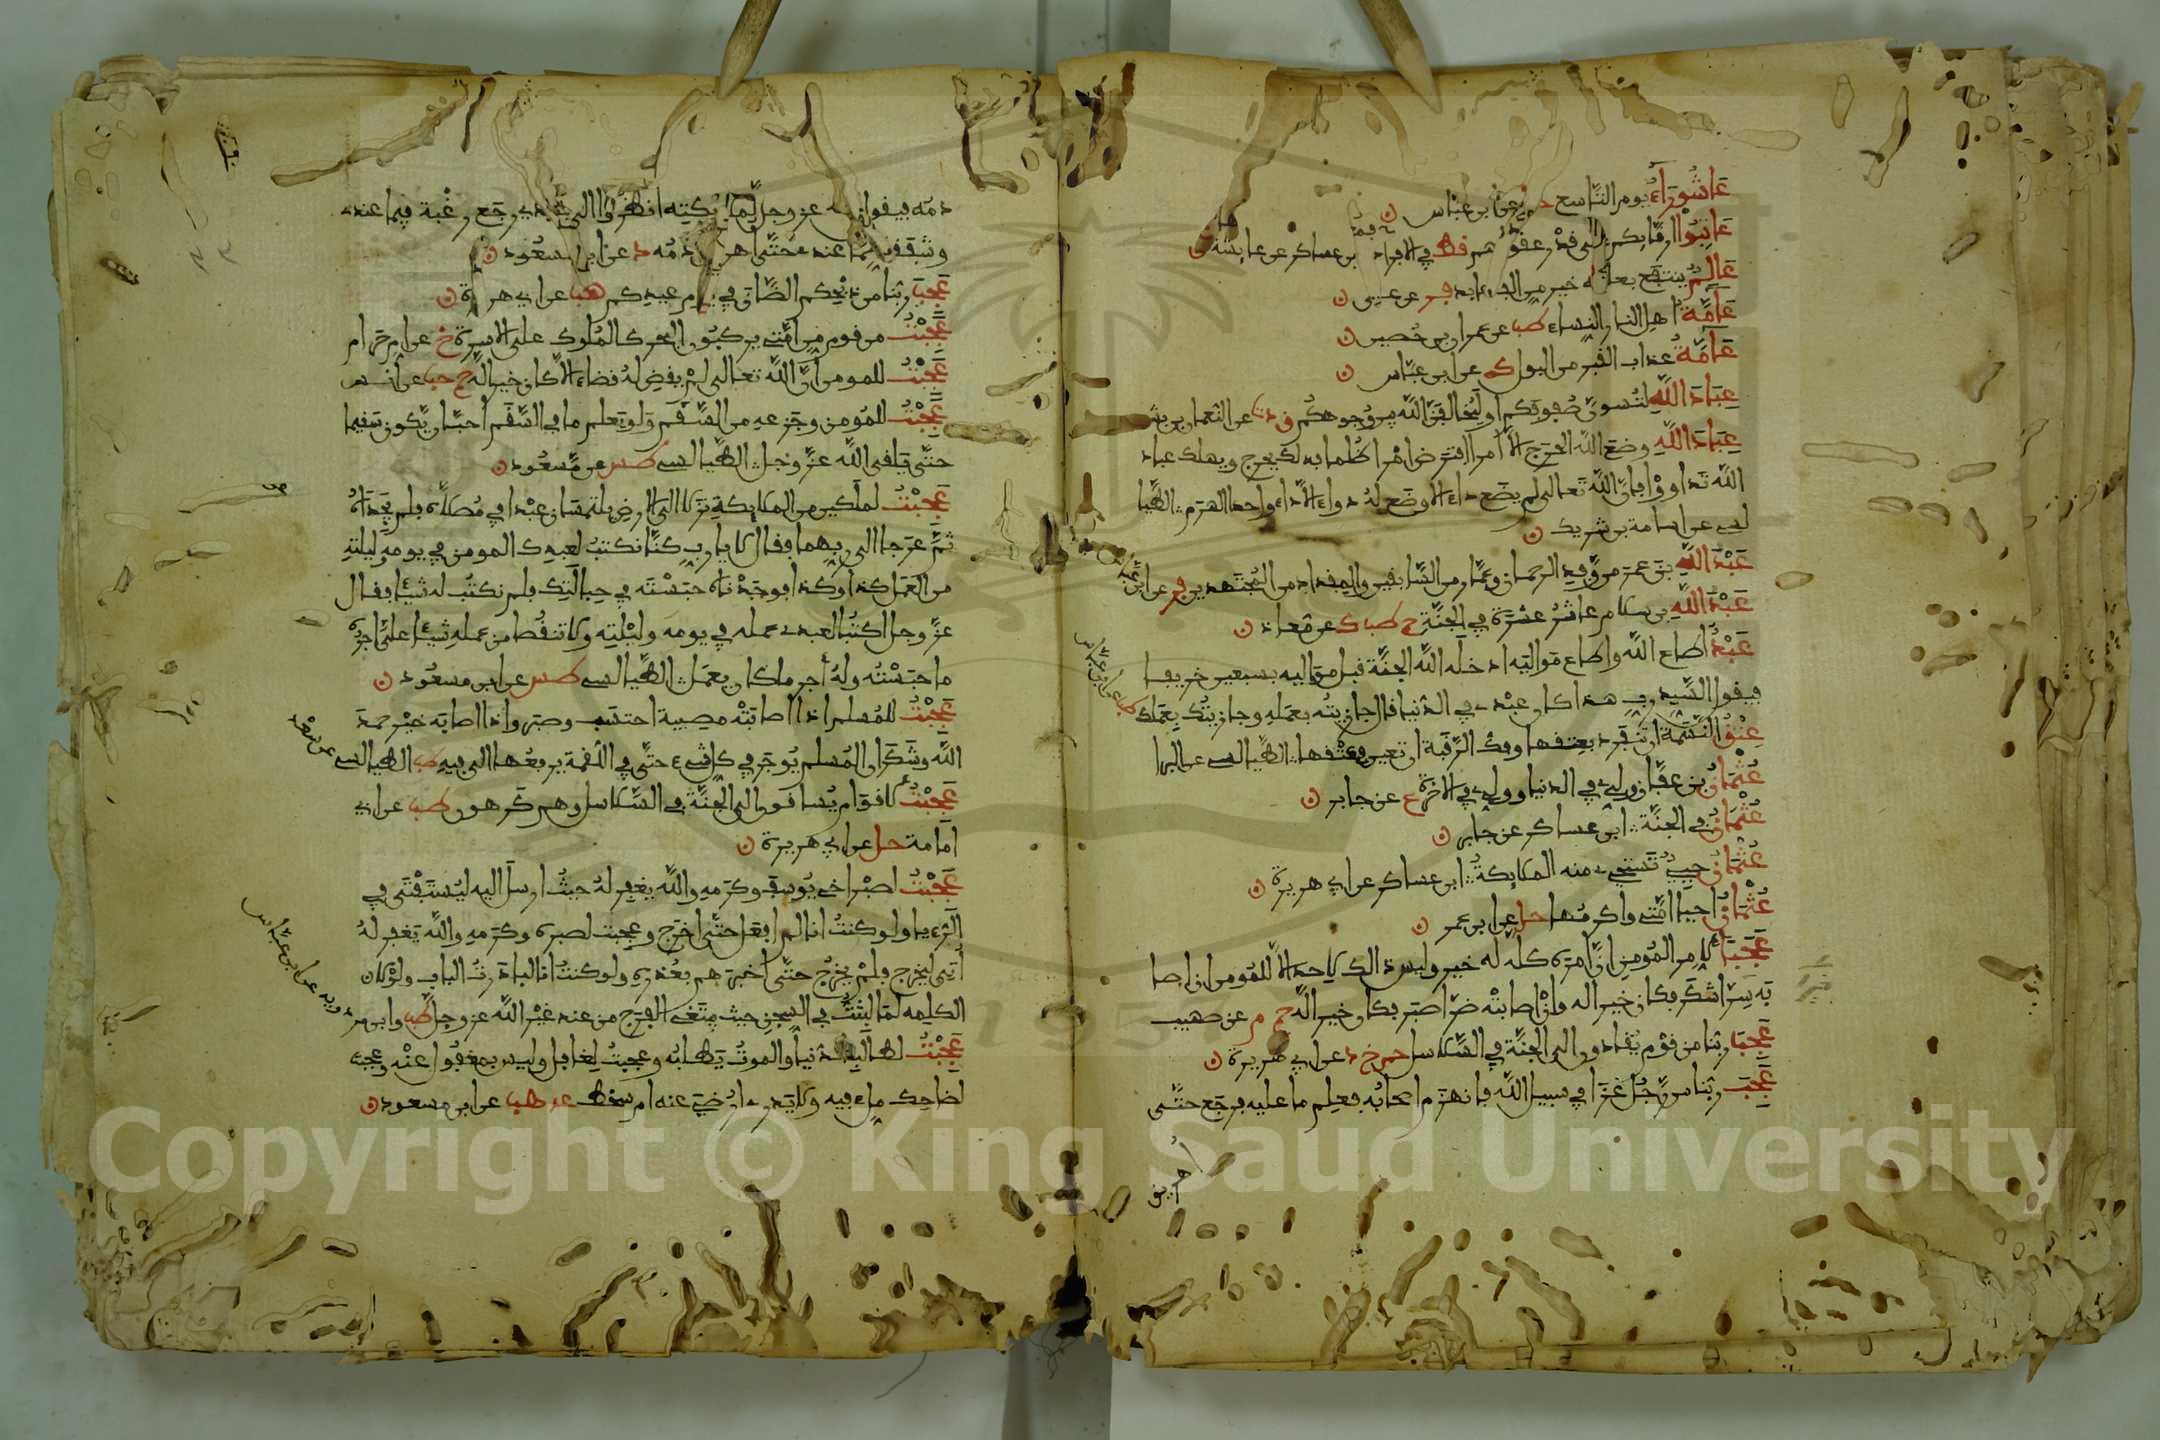 عَاشُورَاءُ يوم التاسع حل عن ابن عباس
عَاتِبُوا ارقابكم على قدر عقولهم قط في الافراد ابن عساكر عن عايشة
عَالِمٌ ينتفع بعلمه خير من الف عابد فر عن علي
عَامَّةُ اهل النار النساء طب عن عمران بن حصين
عَامَّةُ عذاب القبر من البول ك عن ابن عباس
عِبَادَ اللَّهِ لتسوون صفوفكم او ليخالفن الله بين وجوهكم ق د ت عن النعمان بن بشير
عِبَادَ اللَّهِ وضع الله الحرج الا امرا اقترض امرا ظلما بذلك يحرج ويهلك عباد
الله تداووا فان الله تعالى لم يضع داء الا وضع له دواء الا داء واحدا الهرم الطيا
لسي عن اسامة بن شريك
عَبْدُ اللَّهِ بن عمر من وفد الرحمان وعمار من السابقين والمقداد من المجتهدين فر عن ابن عباس
عَبْدُ اللَّهِ بن سلام عاشر عشرة في الجنة حم طب ك عن معاذ
عَبْدٌ اطاع الله واطاع مواليه ادخله الله الجنة قبل مواليه بسبعين خريفا
فيقول السيد رب هذا كان عبدي في الدنيا قال جازيته بعمله وجازيتك بعملك طب عن ابن عباس
عِتْقُ النَّسَمَةِ ان تنفرد بعتقها وفك الرقبة ان تعين في عتقها الطيالسي عن البرا
عُثْمَانُ بن عفان وليي في الدنيا ووليي في الاخرة ع عن جابر
عُثْمَانُ في الجنة ابن عساكر عن جابر
عُثْمَانُ حيي تستحيي منه الملايكة ابن عساكر عن ابي هريرة
عُثْمَانُ احيا امتي واكرمها حل عن ابن عمر
عَجَبًا لامر المؤمن ان امره كله له خير وليس ذالك لاحد الا للمومن ان اصا
بته سرا شكر فكان خيرا له وان اصابته ضرا صبر فكان خيرا له حم م عن صهيب
عَجِبَ ربنا من قوم يقادون الى الجنة في السلاسل حم خ د عن ابي هريرة
عَجِبَ ربنا من رجل غزا في سبيل الله فانهزم اصحابه فعلم ما عليه فرجع حتى
اهريق
دمه فيقول الله عز وجل لملايكته انظروا الى عبدي رجع رغبة فيما عندي
وشفقة مما عندي حتى اهريق دمه د عن ابن مسعود
عَجِبَ ربنا من ذبحكم الضان في يوم عيدكم هب عن ابي هريرة
عَجِبْتُ من قوم من امتي يركبون البحر كالملوك على الاسرة خ عن ام حرام
عَجِبْتُ للمومن ان الله تعالى لم يقض له قضاء الا كان خيرا له حم حب عن انس
عَجِبْتُ للمومن وجزعه من السقم ولو يعلم ما في السقم احب ان يكون سقيما
حتى يلقى الله عز وجل الطيالسي طس عن ابن مسعود
عَجِبْتُ لملكين من الملايكة نزلا الى الارض يلتمسان عبدا في مصلاه فلم يجداه
ثم عرجا الى ربهما فقالا يا رب كنا نكتب لعبدك المومن في يومه وليلته
من العمل كذا وكذا فوجدناه حبسته في حبالتك فلم نكتب له شيئا فقال
عز وجل اكتبا لعبدي عمله في يومه وليلته ولا تنقصا من عمله شيئا علي اجره
ما حبسته وله اجر ما كان يعمل الطيالسي طس عن ابن مسعود
عَجِبْتُ للمسلم اذا اصابته مصيبة احتسب وصبر واذا اصابه خير حمد
الله وشكر ان المسلم يوجر في كل شيء حتى في اللقمة يرفعها الى فيه طب الطيالسي عن سعد
عَجِبْتُ لاقوام يساقون الى الجنة في السلاسل وهم كرهون طب عن ابي
امامة حل عن ابي هريرة
عَجِبْتُ لصبر اخي يوسف وكرمه والله يغفر له حيث ارسل اليه ليستفتى في
الرءيا ولو كنت انا لم افعل حتى اخرج وعجبت لصبره وكرمه والله يغفر له
اتى ليخرج فلم يخرج حتى اخبرهم بعذره ولو كنت انا لبادرت الباب ولولا
الكلمة لما لبث في السجن حيث يبتغي الفرج من عند غير الله عز وجل طب وابن مردويه عن ابن عباس
عَجِبْتُ لطالب الدنيا والموت يطلبه وعجبت لغافل وليس بمغفول عنه وعجبت
لضاحك ملء فيه ولا يدري ارضي عنه ام سخط عد هب عن ابن مسعود